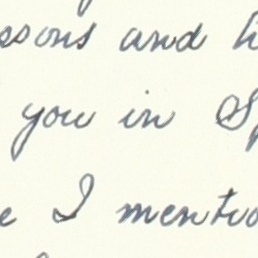 ssons and h
you in Sp
e I mentio